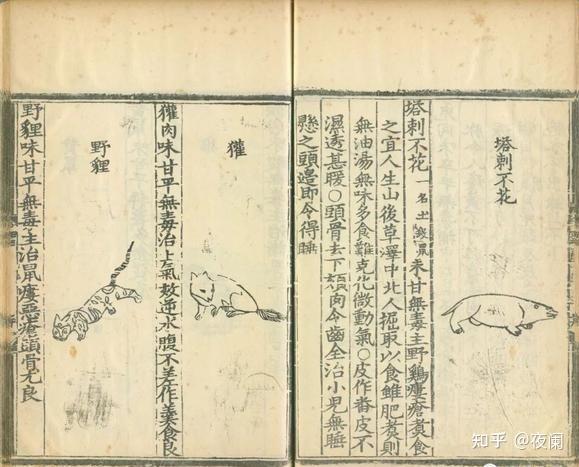 塔剌不花
塔剌不花一名土撥鼠味甘無毒主野鷄瘻瘡煑食
之宜人生山後草澤中北人掘取以食雖肥煑則
無油湯無味多食難克化微動氣○皮作番皮不
濕透甚暖○頭骨去下頦肉令齒全治小兒無睡
懸之頭邉即令得睡
獾
獾肉味甘平無毒治上氣欬逆水腹不差作羹食良
野貍
野貍味甘平無毒主治鼠瘻惡瘡頭骨尤良
知乎 @夜阑